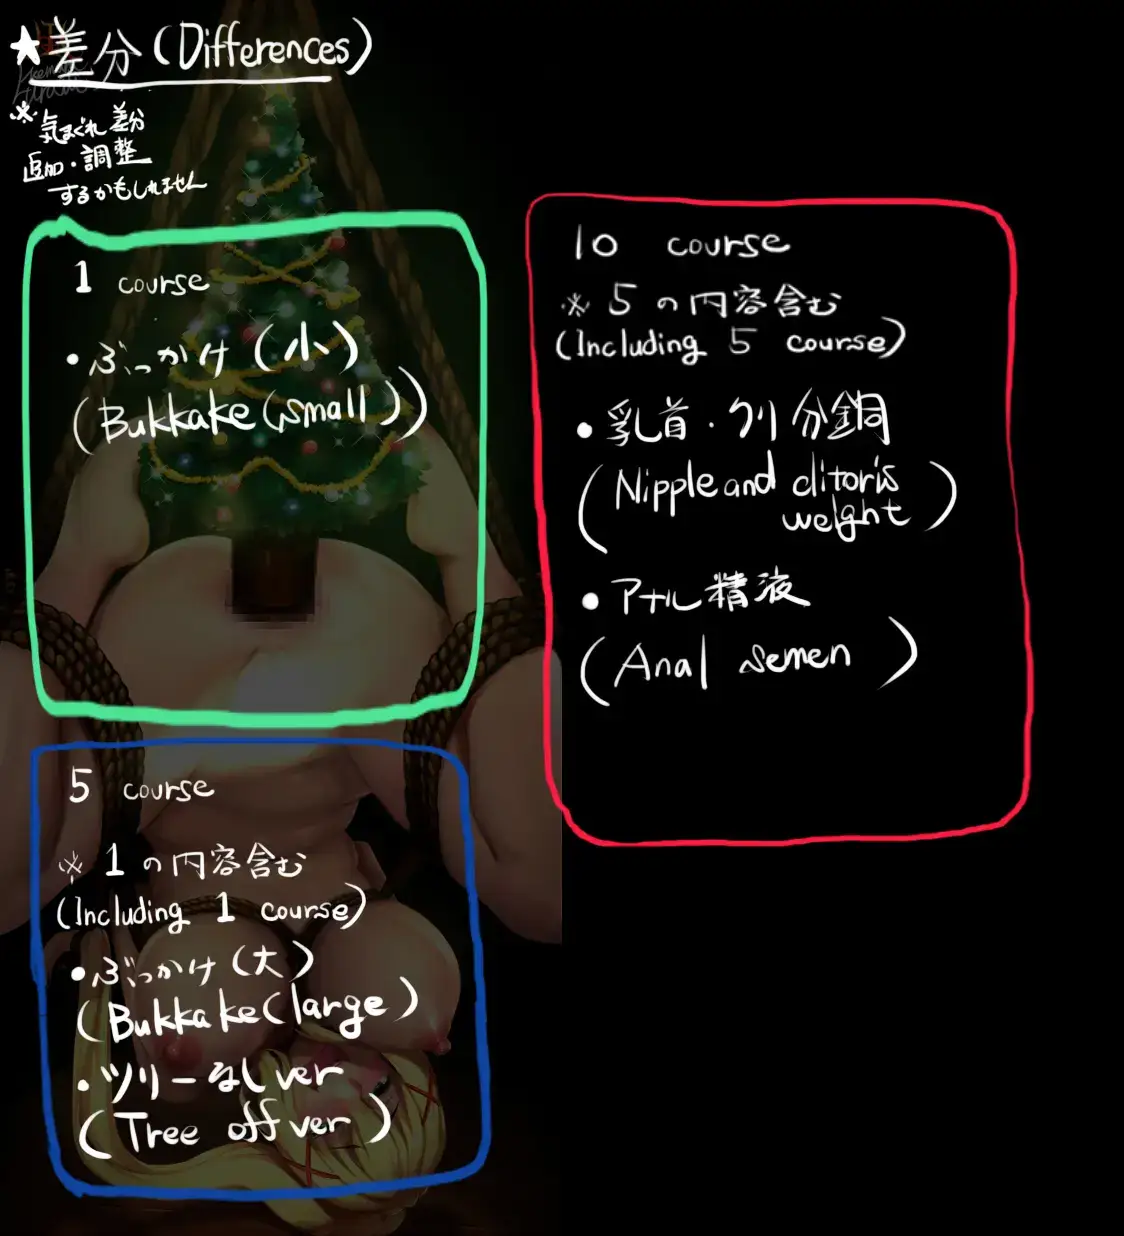 ★差分(Differences)
※気まぐれ差分
追加・調整
するかもしれません
1 course
・ぶっかけ(小)
(Bukkake(small))
5 course
※1の内容含む
(Including 1 course)
・ぶっかけ(大)
(Bukkake(large)
・ツリーなしver
(Tree off ver)
10 course
※5の内容含む
(Including 5 course)
・乳首・クリ分銅
(Nipple and clitoris
weight)
・アナル精液
(Anal semen)